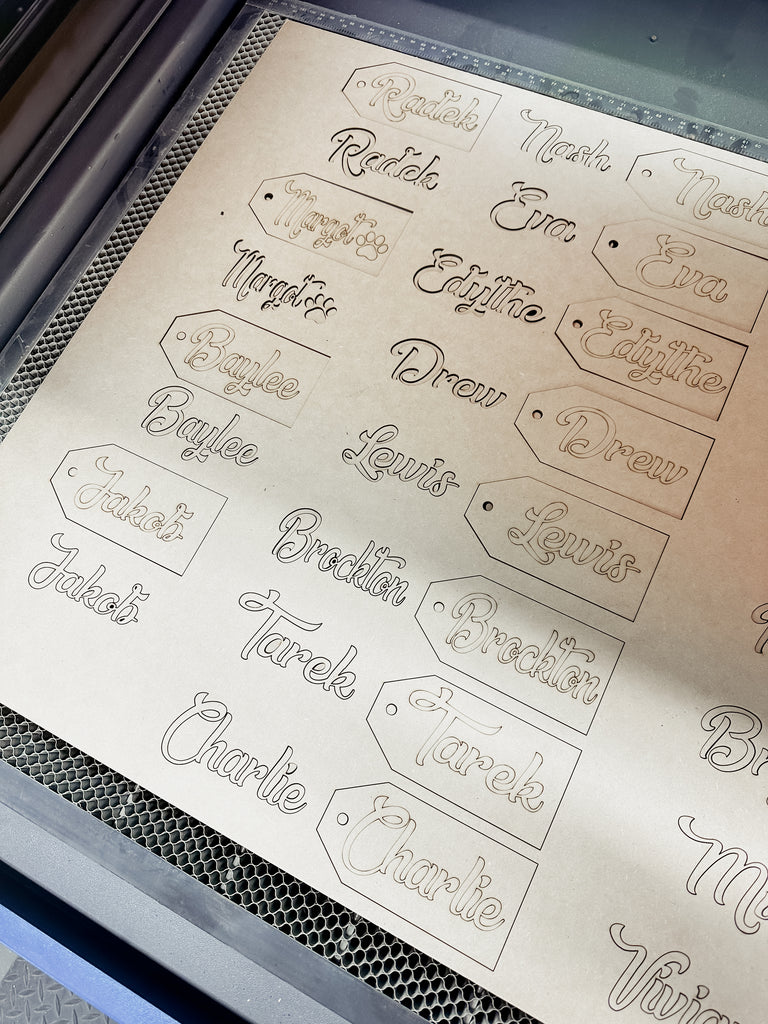 Radek
Radek
Margot
Margot
Baylee
Baylee
Jakob
Jakob
Nash
Nash
Eva
Eva
Edythe
Edythe
Drew
Drew
Lewis
Lewis
Brockton
Brockton
Tarek
Tarek
Charlie
Charlie
Br
M
Vivia